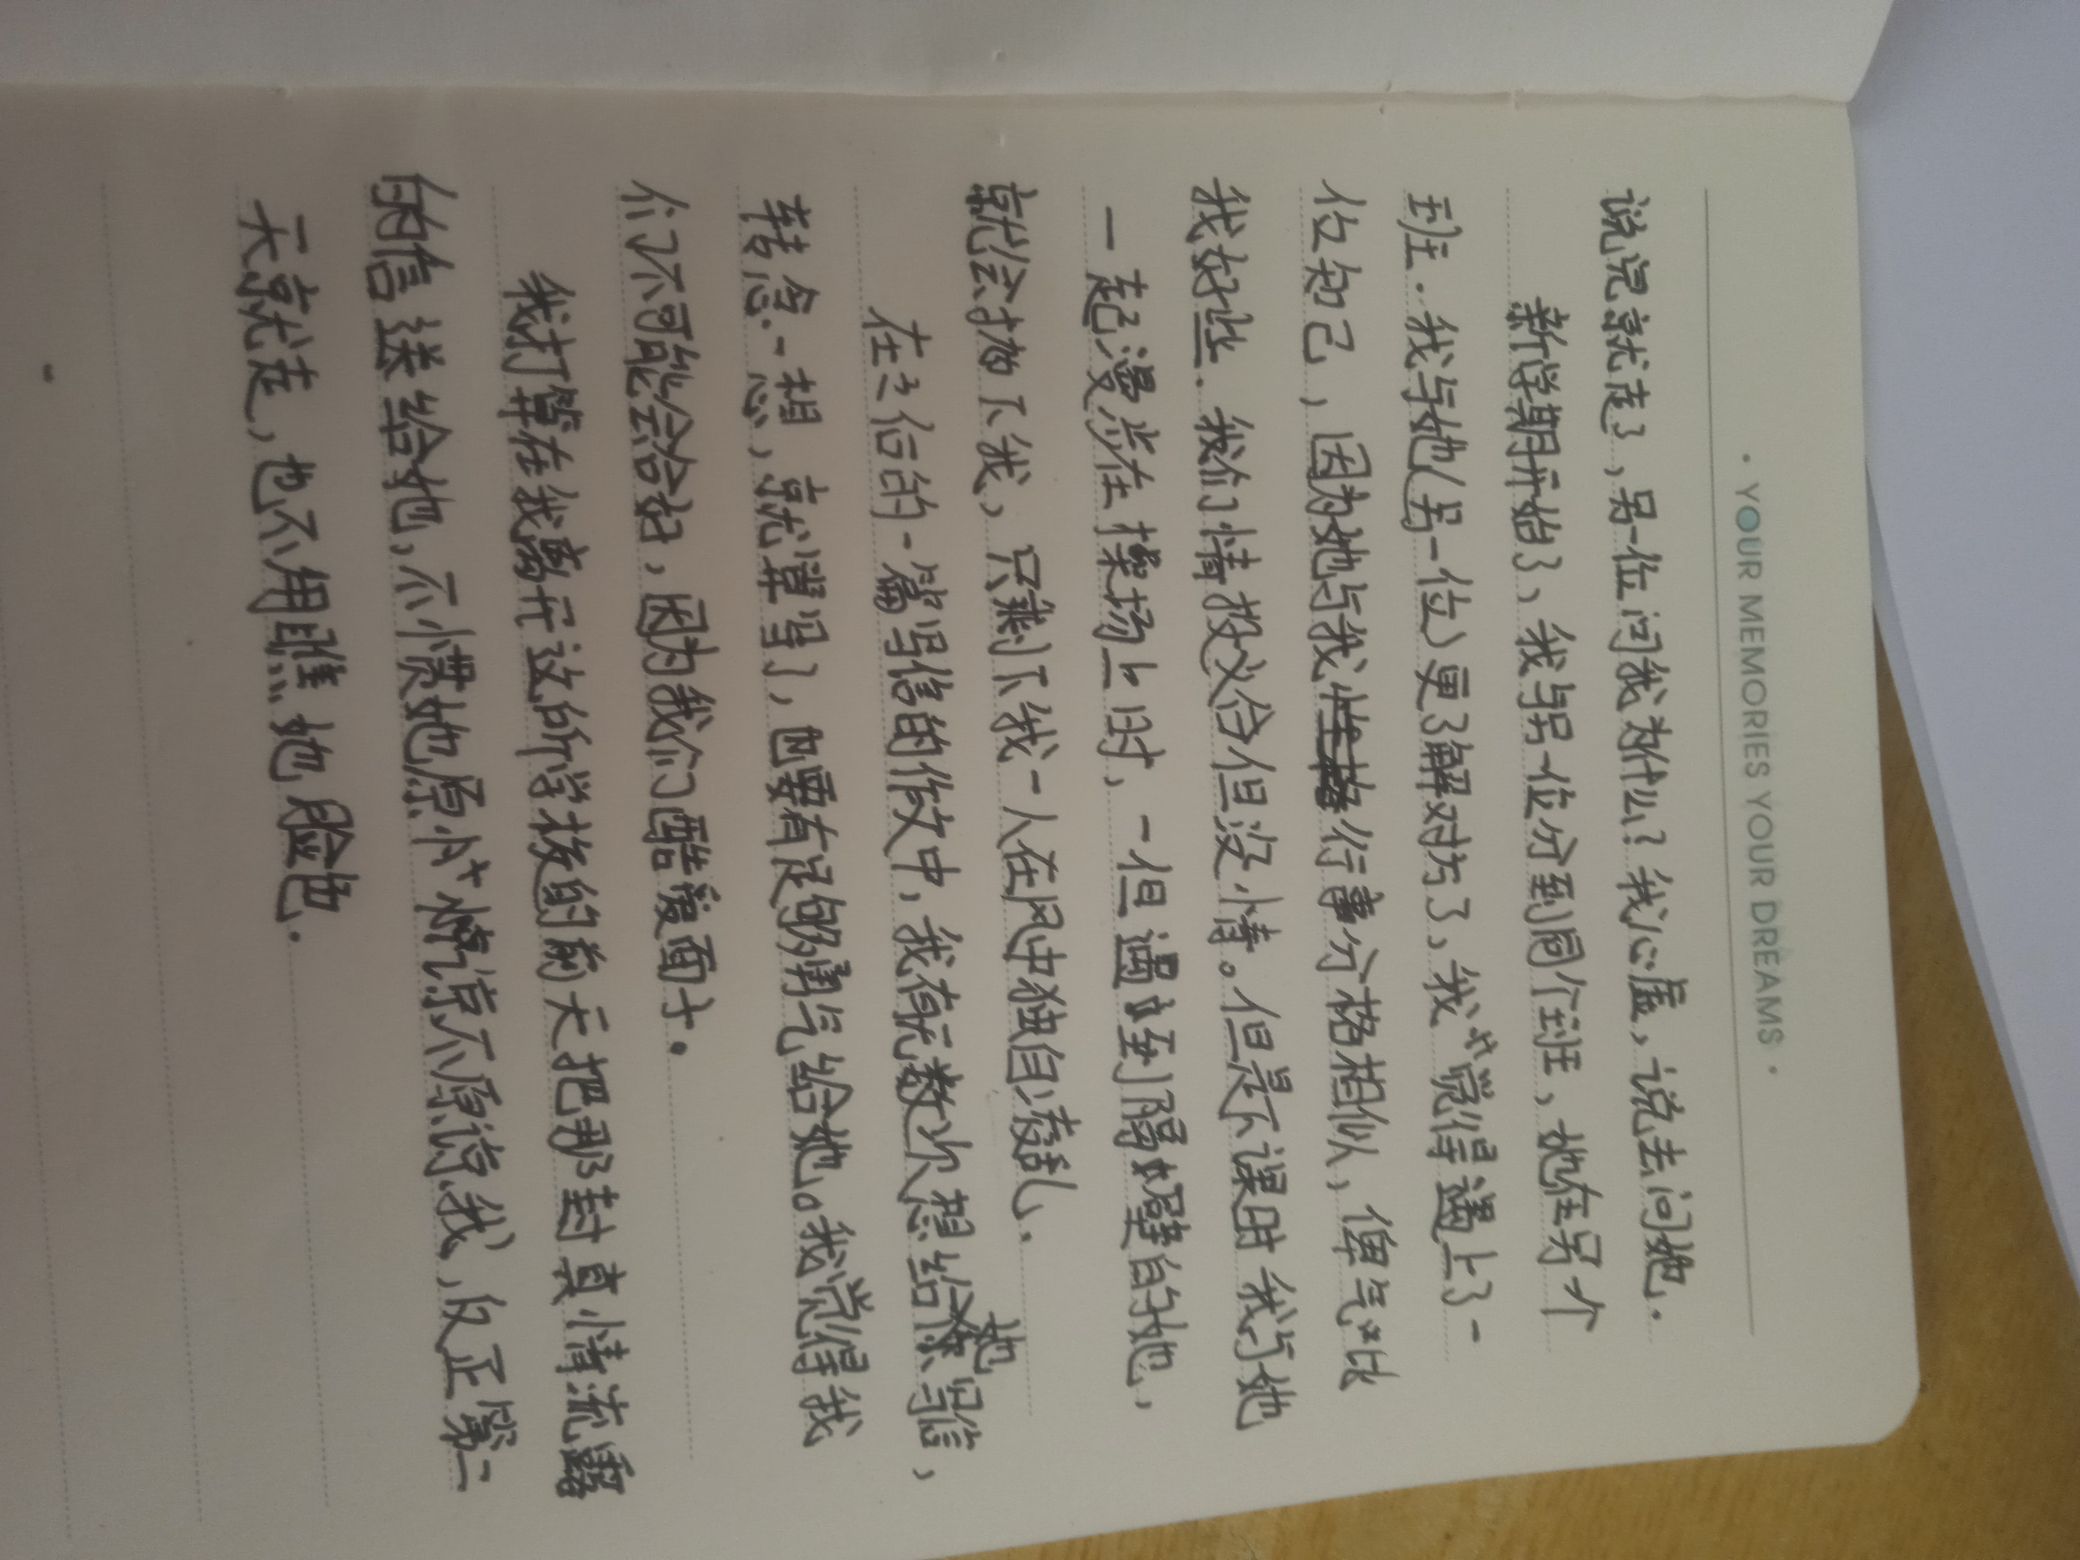 · YOUR MEMORIES YOUR DREAMS ·
说完就走了，另一位问我为什么？我心虚，说去问她.
新学期开始了、我与另一位分到同个班、她在另个
班. 我与她(另一位)更了解对方了、我觉得遇上了一
位知己，因为她与我行事分格相似、俾气比
我好些. 我们情投义合但没小情。但是下课时我与她
一起漫步在操场上时、一但遇到隔壁的她，
就会抛下我，只剩下我一人在风中独自凌乱.
在之后的一篇写信的作文中，我有无数次想给她写信，
转念一想，就算写了，也要有足够勇气给她。我觉得我
们不可能会合好，因为我们酷爱面子。
我打算在我离开这所学校的前天把那封真情流露
的信送给她，不惯她原谅不原谅我，反正第二
天就走，也不用瞧她脸色.